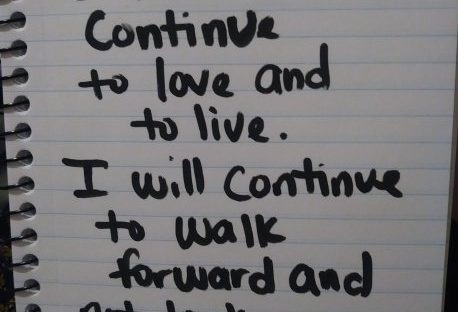 Continue
to love and
to live.
I will continue
to walk
forward and